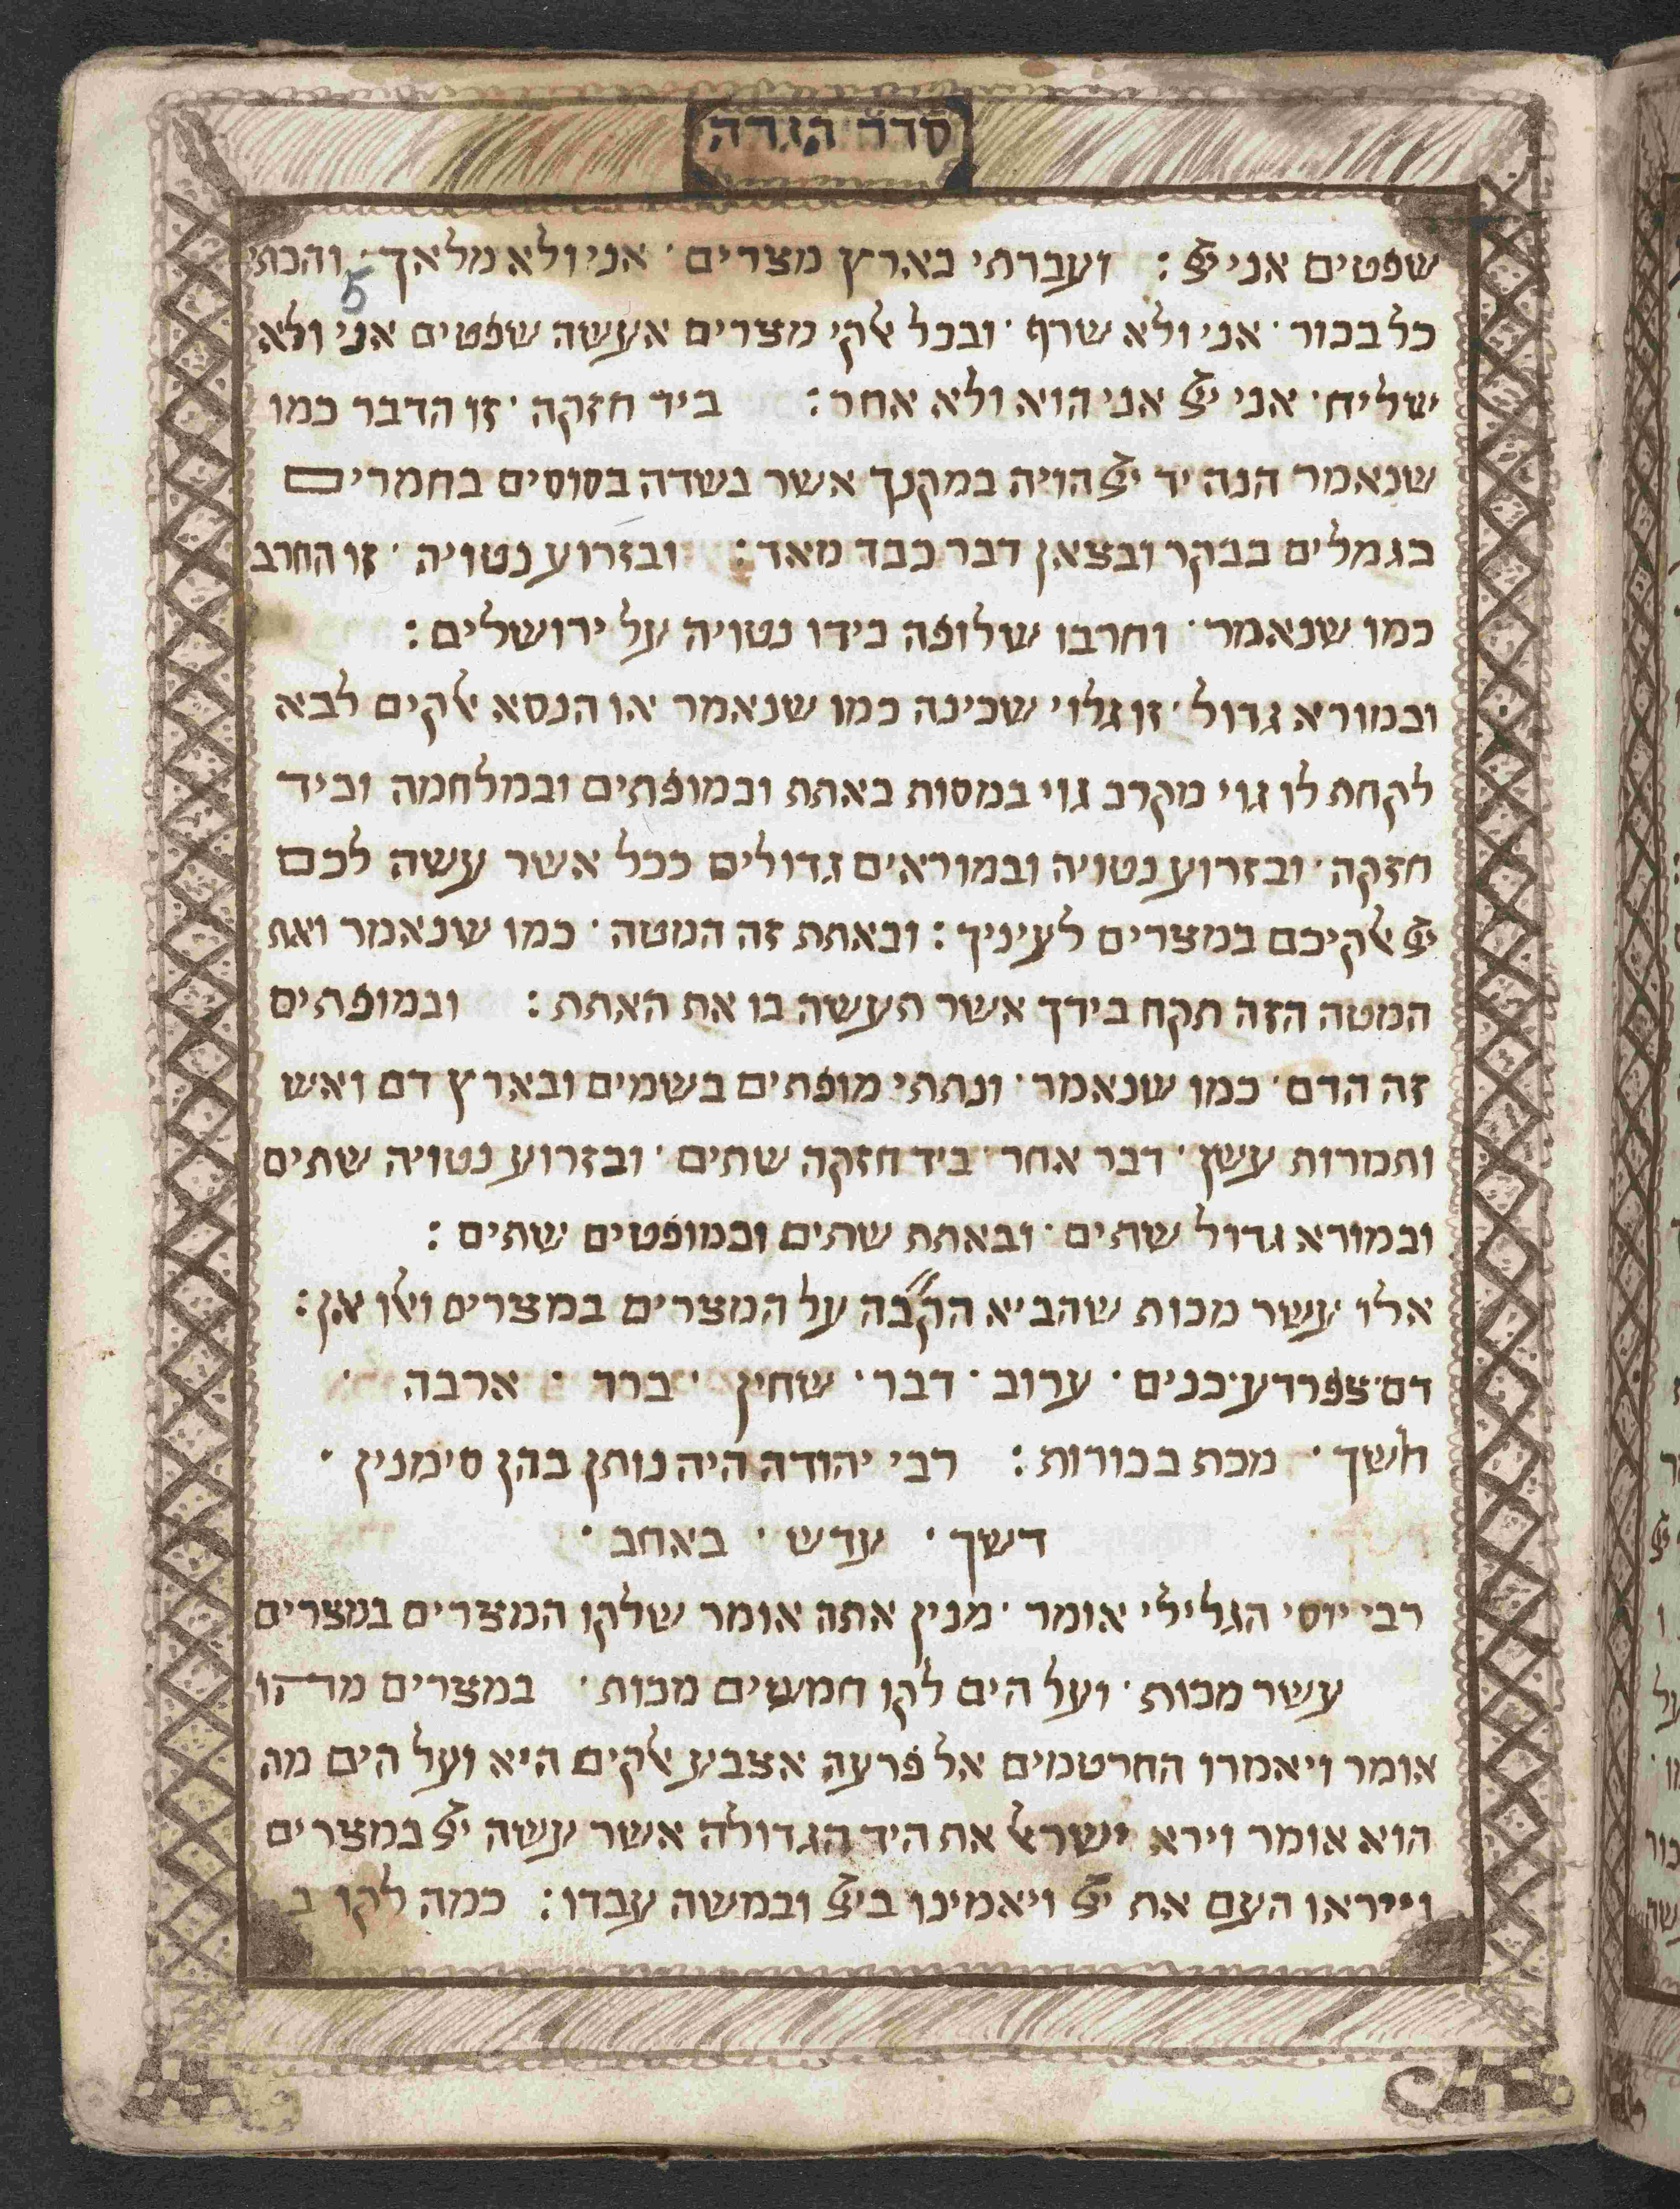 סדר הגדה
שפטים אני יי׳: ועברתי בארץ מצרים · אני ולא מלאך · והכתי
5
כל בכור · אני ולא שרף · ובכל אלקי מצרים אעשה שפטים אני ולא
שליח · אני יי׳ אני הוא ולא אחר: ביד חזקה · זו הדבר כמו
שנאמר הנה יד יי׳ הויה במקנך אשר בשדה בסוסים בחמרים
בגמלים בבקר ובצאן דבר כבד מאד: ובזרוע נטויה · זו החרב
כמו שנאמר · וחרבו שלופה בידו נטויה על ירושלים:
ובמורא גדול · זו גלוי שכינה כמו שנאמר או הנסא אלקים לבא
לקחת לו גוי מקרב גוי במסות באתת ובמופתים ובמלחמה וביד
חזקה · ובזרוע נטויה ובמוראים גדולים ככל אשר עשה לכם
יי׳ אלקיכם במצרים לעיניך: ובאתת זה המטה · כמו שנאמר ואת
המטה הזה תקח בידך אשר תעשה בו את האתת: ובמופתים
זה הדם · כמו שנאמר · ונתתי מופתים בשמים ובארץ דם ואש
ותמרות עשן · דבר אחר · ביד חזקה שתים · ובזרוע נטויה שתים
ובמורא גדול שתים · ובאתת שתים ובמופטים שתים:
אלו עשר מכות שהביא הק״בה על המצרים במצרים ואלו אן:
דם · צפרדע · כנים · ערוב · דבר · שחין · ברד · ארבה ·
חשך · מכת בכורות: רבי יהודה היה נותן בהן סימנין ·
דשך · עדש · באחב ·
רבי יוסי הגלילי אומר · מנין אתה אומר שלקו המצרים במצרים
עשר מכות · ועל הים לקו חמשים מכות · במצרים מה הו
אומר ויאמרו החרטמים אל פרעה אצבע אלקים היא ועל הים מה
הוא אומר וירא ישראל את היד הגדולה אשר עשה יי׳ במצרים
וייראו העם את יי׳ ויאמינו ביי׳ ובמשה עבדו: כמה לקו ב